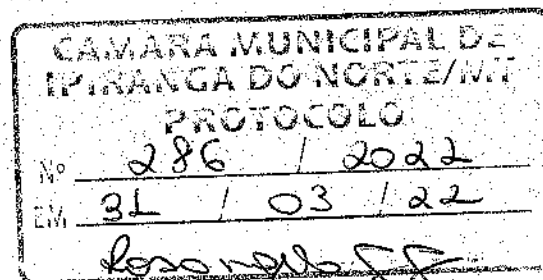 CAMARA MUNICIPAL DE
IPIRANGA DO NORTE/MT
PROTOCOLO
Nº 286 / 2022
EM 31 / 03 / 22